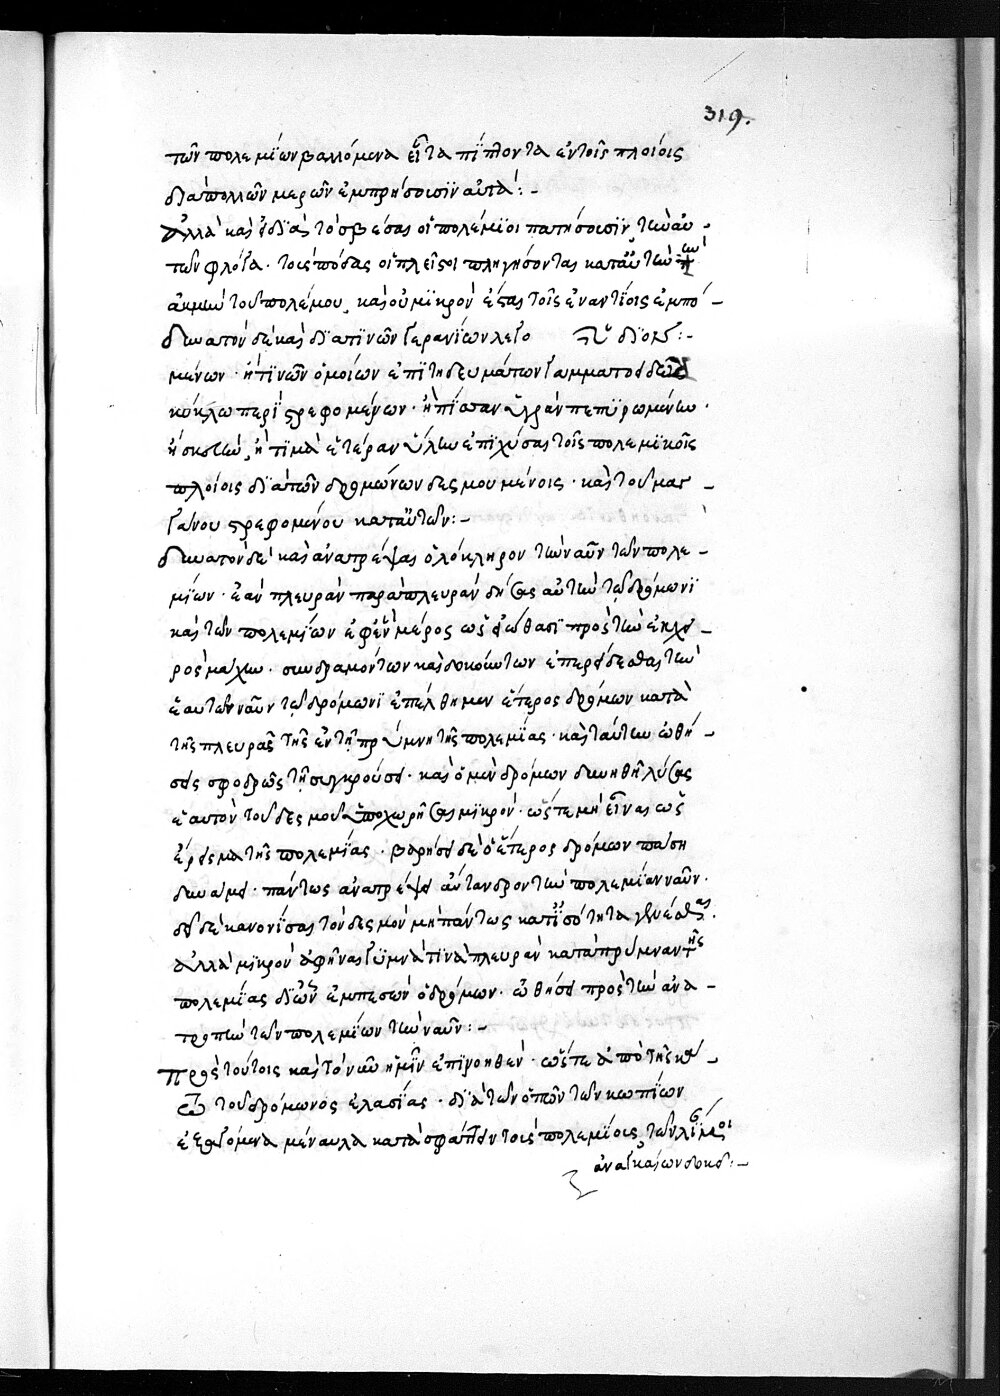 319.
τῶν πολεμίων βαλλόμενα εἶτα πίπτοντα ἐν τοῖς πλοίοις
διὰ πολλῶν μερῶν ἐμπρήσουσιν αὐτά:-
Ἀλλὰ καὶ διὰ τὸ σβέσαι οἱ πολέμιοι πατήσουσιν τὴν αὐ
τῶν φλόγα. τοὺς πόδας οἱ πλεῖστοι πληγήσονται κατ' αὐτὴν τὴν
ἀκμὴν τοῦ πολέμου, καὶ οὐ μικρὸν ἔσται τοῖς ἐναντίοις ἐμπό-
δυνατὸν δὲ καὶ διά τινων γερανίων λεγο διον:-
μένων. ἤ τινων ὁμοίων ἐπιτηδευμάτων γαμματοειδῶς
κύκλω περιστρεφομένων. ἢ πίσσαν ὑγρὰν πεπυρωμένην.
ἢ σκευὴν, ἢ τινὰ ἑτέραν ὕλην ἐπιχύσαι τοῖς πολεμικοῖς
πλοίοις διὰ τῶν δρομώνων δεσμουμένοις. καὶ τοῦ μαγ-
γάνου στρεφομένου κατ' αὐτῶν:-
δυνατὸν δὲ καὶ ἀνατρέψαι ὁλόκληρον τὴν ναῦν τῶν πολε-
μίων. ἐὰν πλευρὰν παρὰ πλευρὰν δήσας αὐτὴν τῷ δρόμωνι
καὶ τῶν πολεμίων ἐφ' ἓν μέρος ὡς εἰώθασι πρὸς τὴν ἐκ χει-
ρὸς μάχην. συνδραμόντων καὶ δοκούντων ἐπερείδεσθαι τὴν
ἑαυτῶν ναῦν τῷ δρόμωνι ἐπέλθη μὲν ἕτερος δρόμων κατὰ
τῆς πλευρᾶς τῆς ἐν τῇ πρύμνη τῆς πολεμίας. καὶ ταύτην ὠθή-
σει σφοδρῶς τῇ συγκρούσει. καὶ ὁ μὲν δρόμων δυνηθῇ λύσας
ἑαυτὸν τοῦ δεσμοῦ ὑποχωρῆσαι μικρόν. ὥστε μὴ εἶναι ὡς
ἔρεισμα τῆς πολεμίας. βαρήσει δὲ ὁ ἕτερος δρόμων πάση
δυνάμει. πάντως ἀνατρέψει αὔτανδρον τὴν πολεμίαν ναῦν.
δεῖ δὲ κανονίσαι τὸν δεσμὸν μὴ πάντως κατ' ἰσότητα γενέσθαι.
ἀλλὰ μικρὸν ἀφῆναι γυμνά τινὰ πλευρὰν κατὰ πρύμναν τῆς
πολεμίας δι' ὧν ἐμπεσὼν ὁ δρόμων. ὠθήσει πρὸς τὴν ἀνα-
τροπὴν τῶν πολεμίων τὴν ναῦν:-
Πρὸς τούτοις καὶ τὸ νῦν ἡμῖν ἐπινοηθὲν. ὥστε ἀπὸ τῆς κά-
τω τοῦ δρόμωνος ἐλασίας. διὰ τῶν ὀπῶν τῶν κωπίων
ἐξερχόμενα μέναυλα κατασφάττειν τοὺς πολεμίους, τῶν
ἀναγκαίων δοκεῖ:-